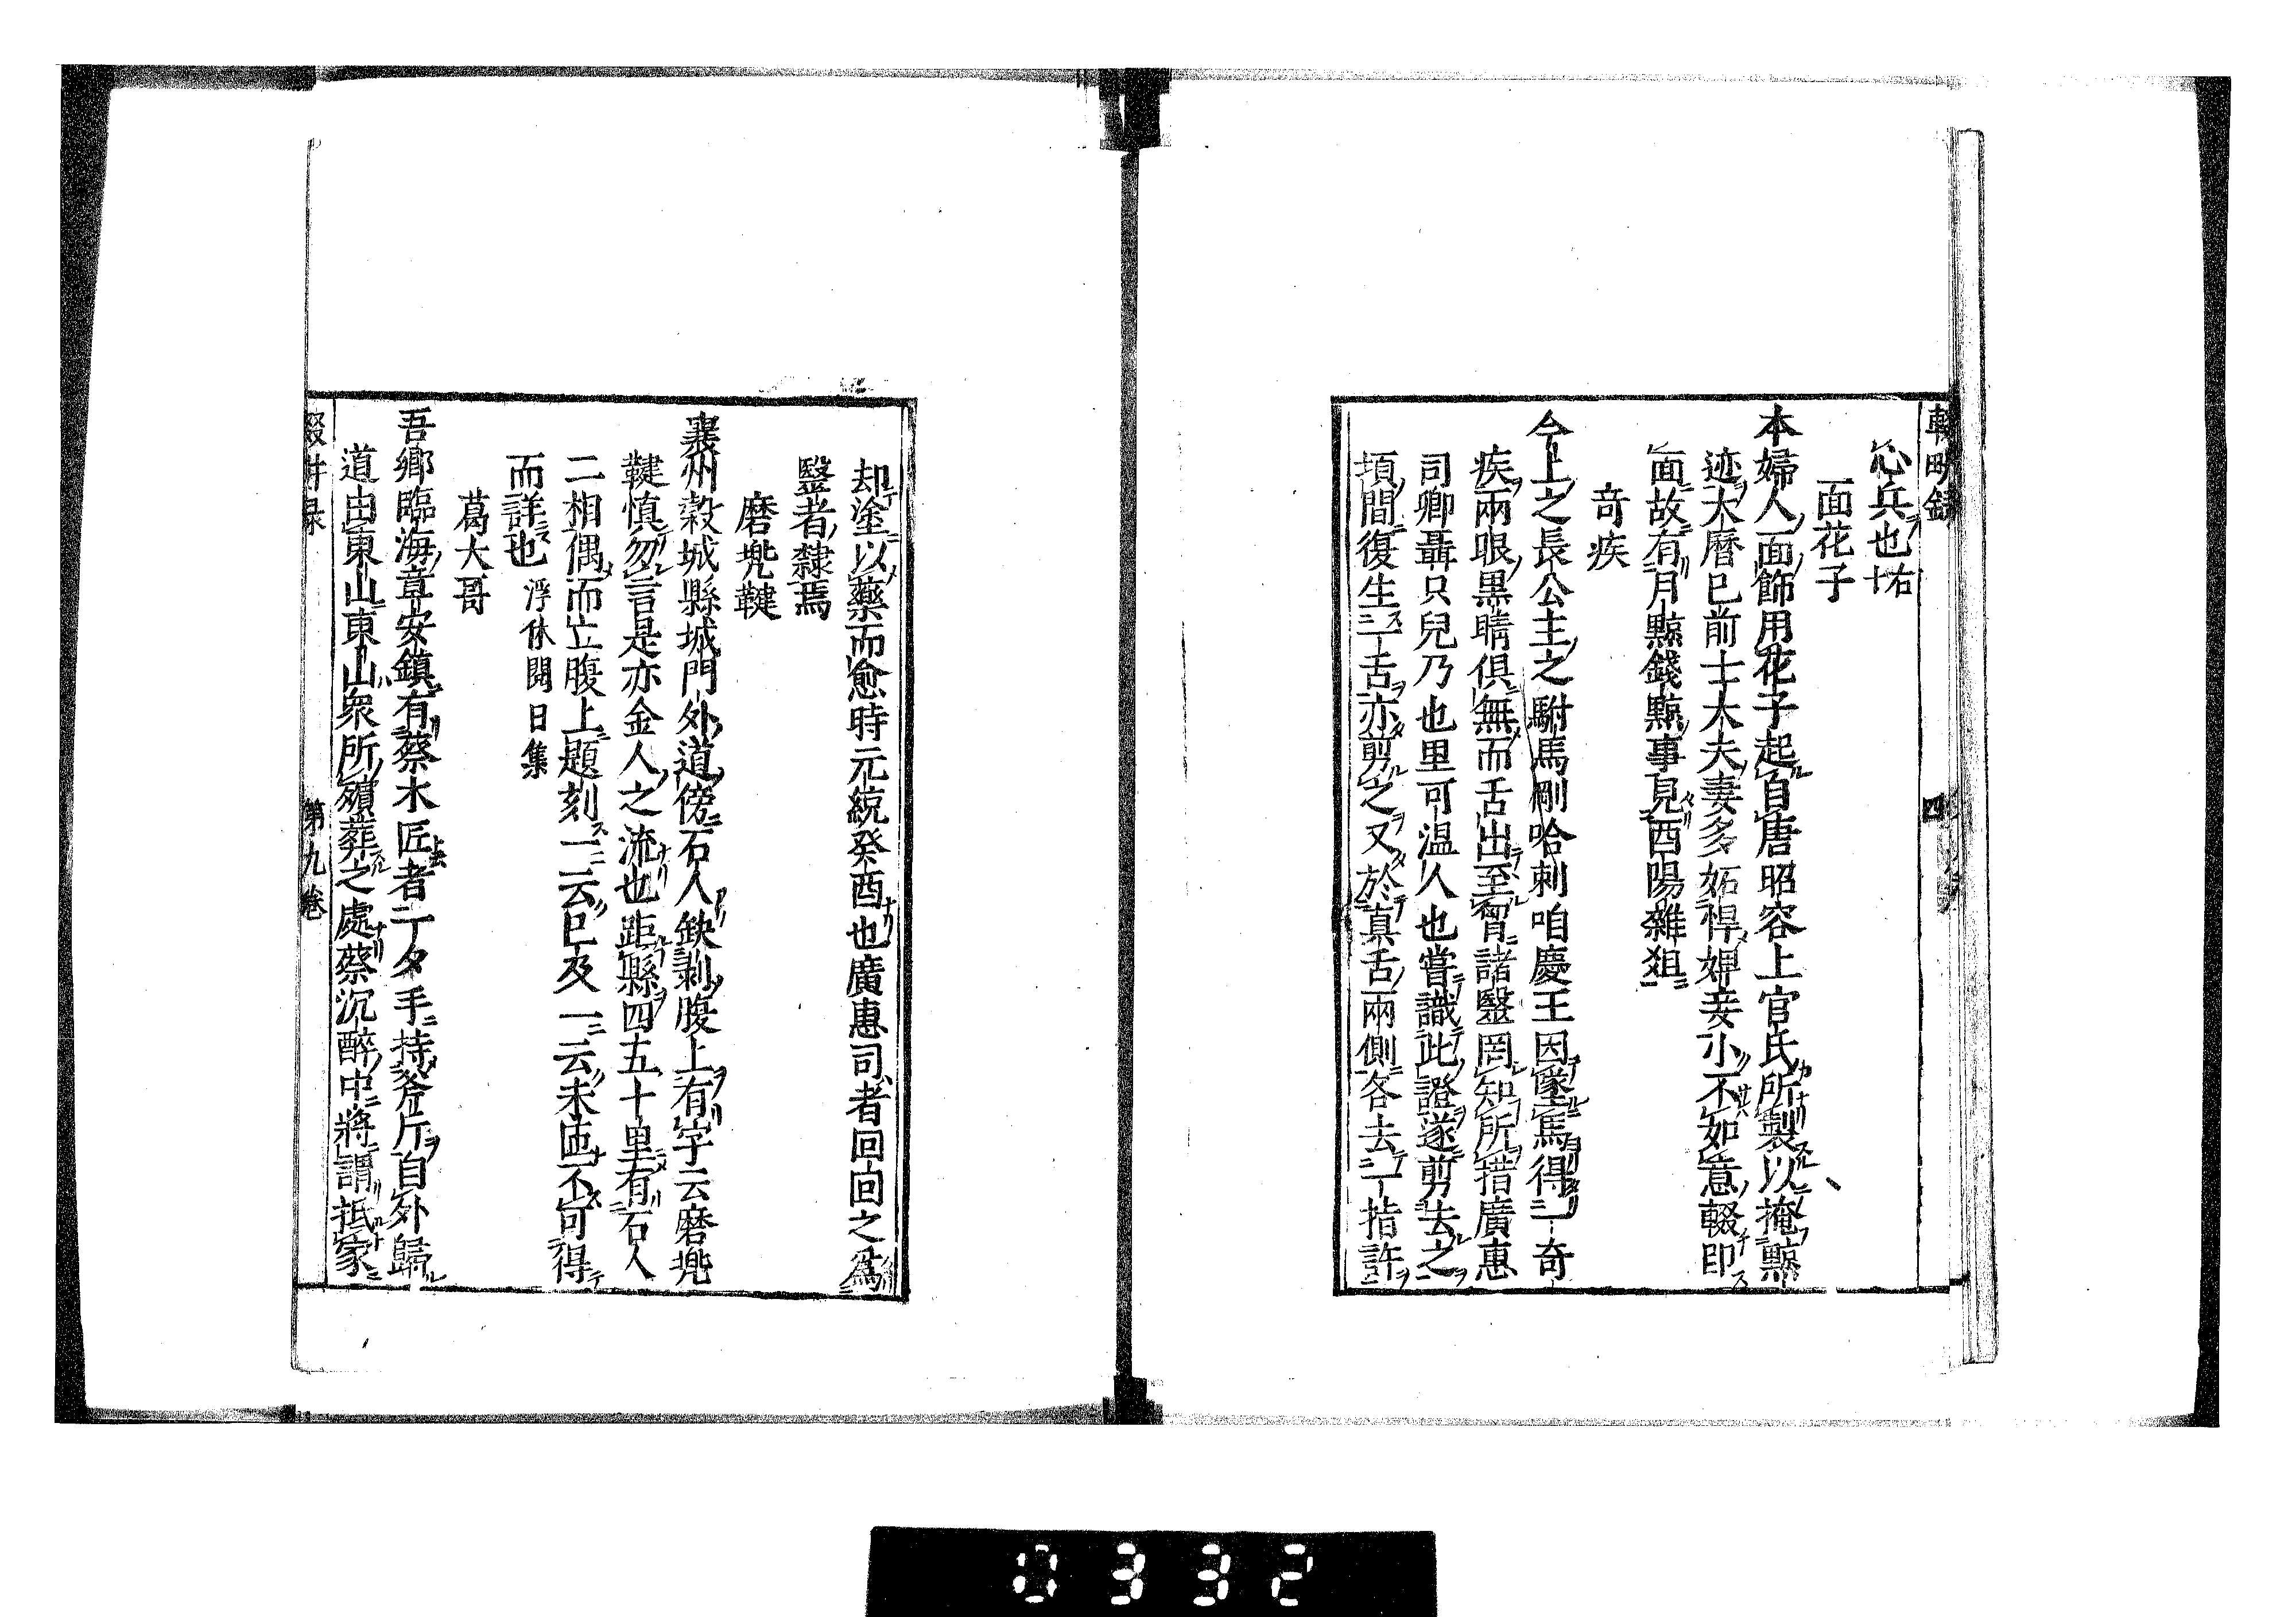 輟畊錄
四
心兵也右十
面花子
本婦人面飾用花子起自唐昭容上官氏所製以掩黥
迹大曆已前士大夫妻多妬悍婢妾小不如意輙印
面故有月黥錢黥事見酉陽雜俎
奇疾
今上之長公主之駙馬剛哈剌咱慶王因墜馬得一奇
疾兩眼黒睛俱無而舌出至胷諸毉罔知所措廣惠
司卿聶只兒乃也里可温人也嘗識此證遂剪去之
頃間復生一舌亦剪之又於真舌兩側各去一指許
却塗以藥而愈時元統癸酉也廣惠司者回回之爲
毉者隸焉
磨兠鞬
襄州榖城縣城門外道傍石人缺剥腹上有字云磨兠
鞬慎勿言是亦金人之流也距縣四五十里有石人
二相偶而立腹上題刻一云已及一云未匝不可得
而詳也 浮休閱日集
葛大哥
吾鄉臨海章安鎮有蔡木匠者一夕手持斧斤自外歸
道由東山東山衆所殯葬之處蔡沉醉中將謂抵家
輟畊录
第九卷
0332